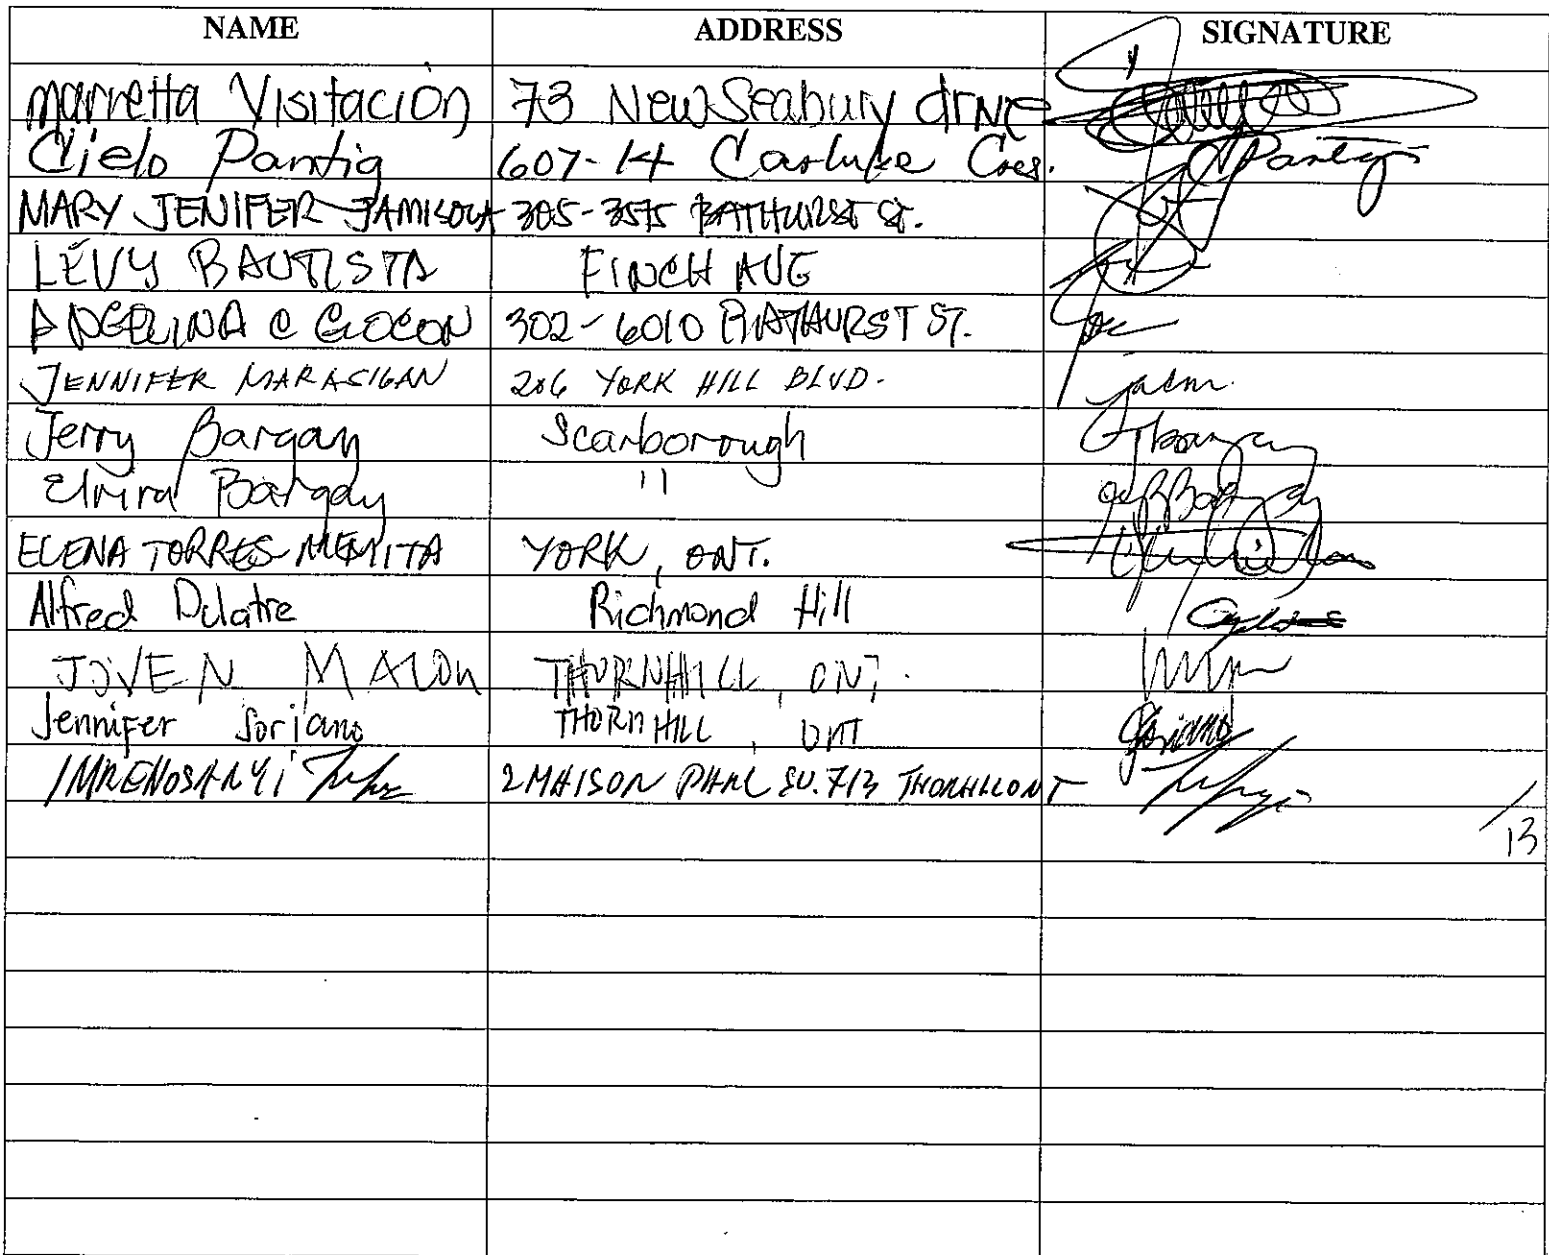 NAME ADDRESS SIGNATURE
Marrietta Visitacion 73 New Seabury drive
Cielo Pantig 607-14 Carluke Cres. Pantig
MARY JENIFER JAMISOLA 305-3575 BATHURST ST.
LEVY BAUTISTA FINCH AVE
ANGELINA C GOCON 302-6010 BATHURST ST.
JENNIFER MARASIGAN 206 YORK HILL BLVD.
Jerry Bargay Scarborough
Elvira Bargay 11
ELENA TORRES YORK, ONT.
Alfred Dulatre Richmond Hill
JOVEN MALON THORNHILL, ONT.
Jennifer Soriano THORNHILL, ONT Soriano
2 MAISON PARC SU. 713 THORNHLL ONT
/13